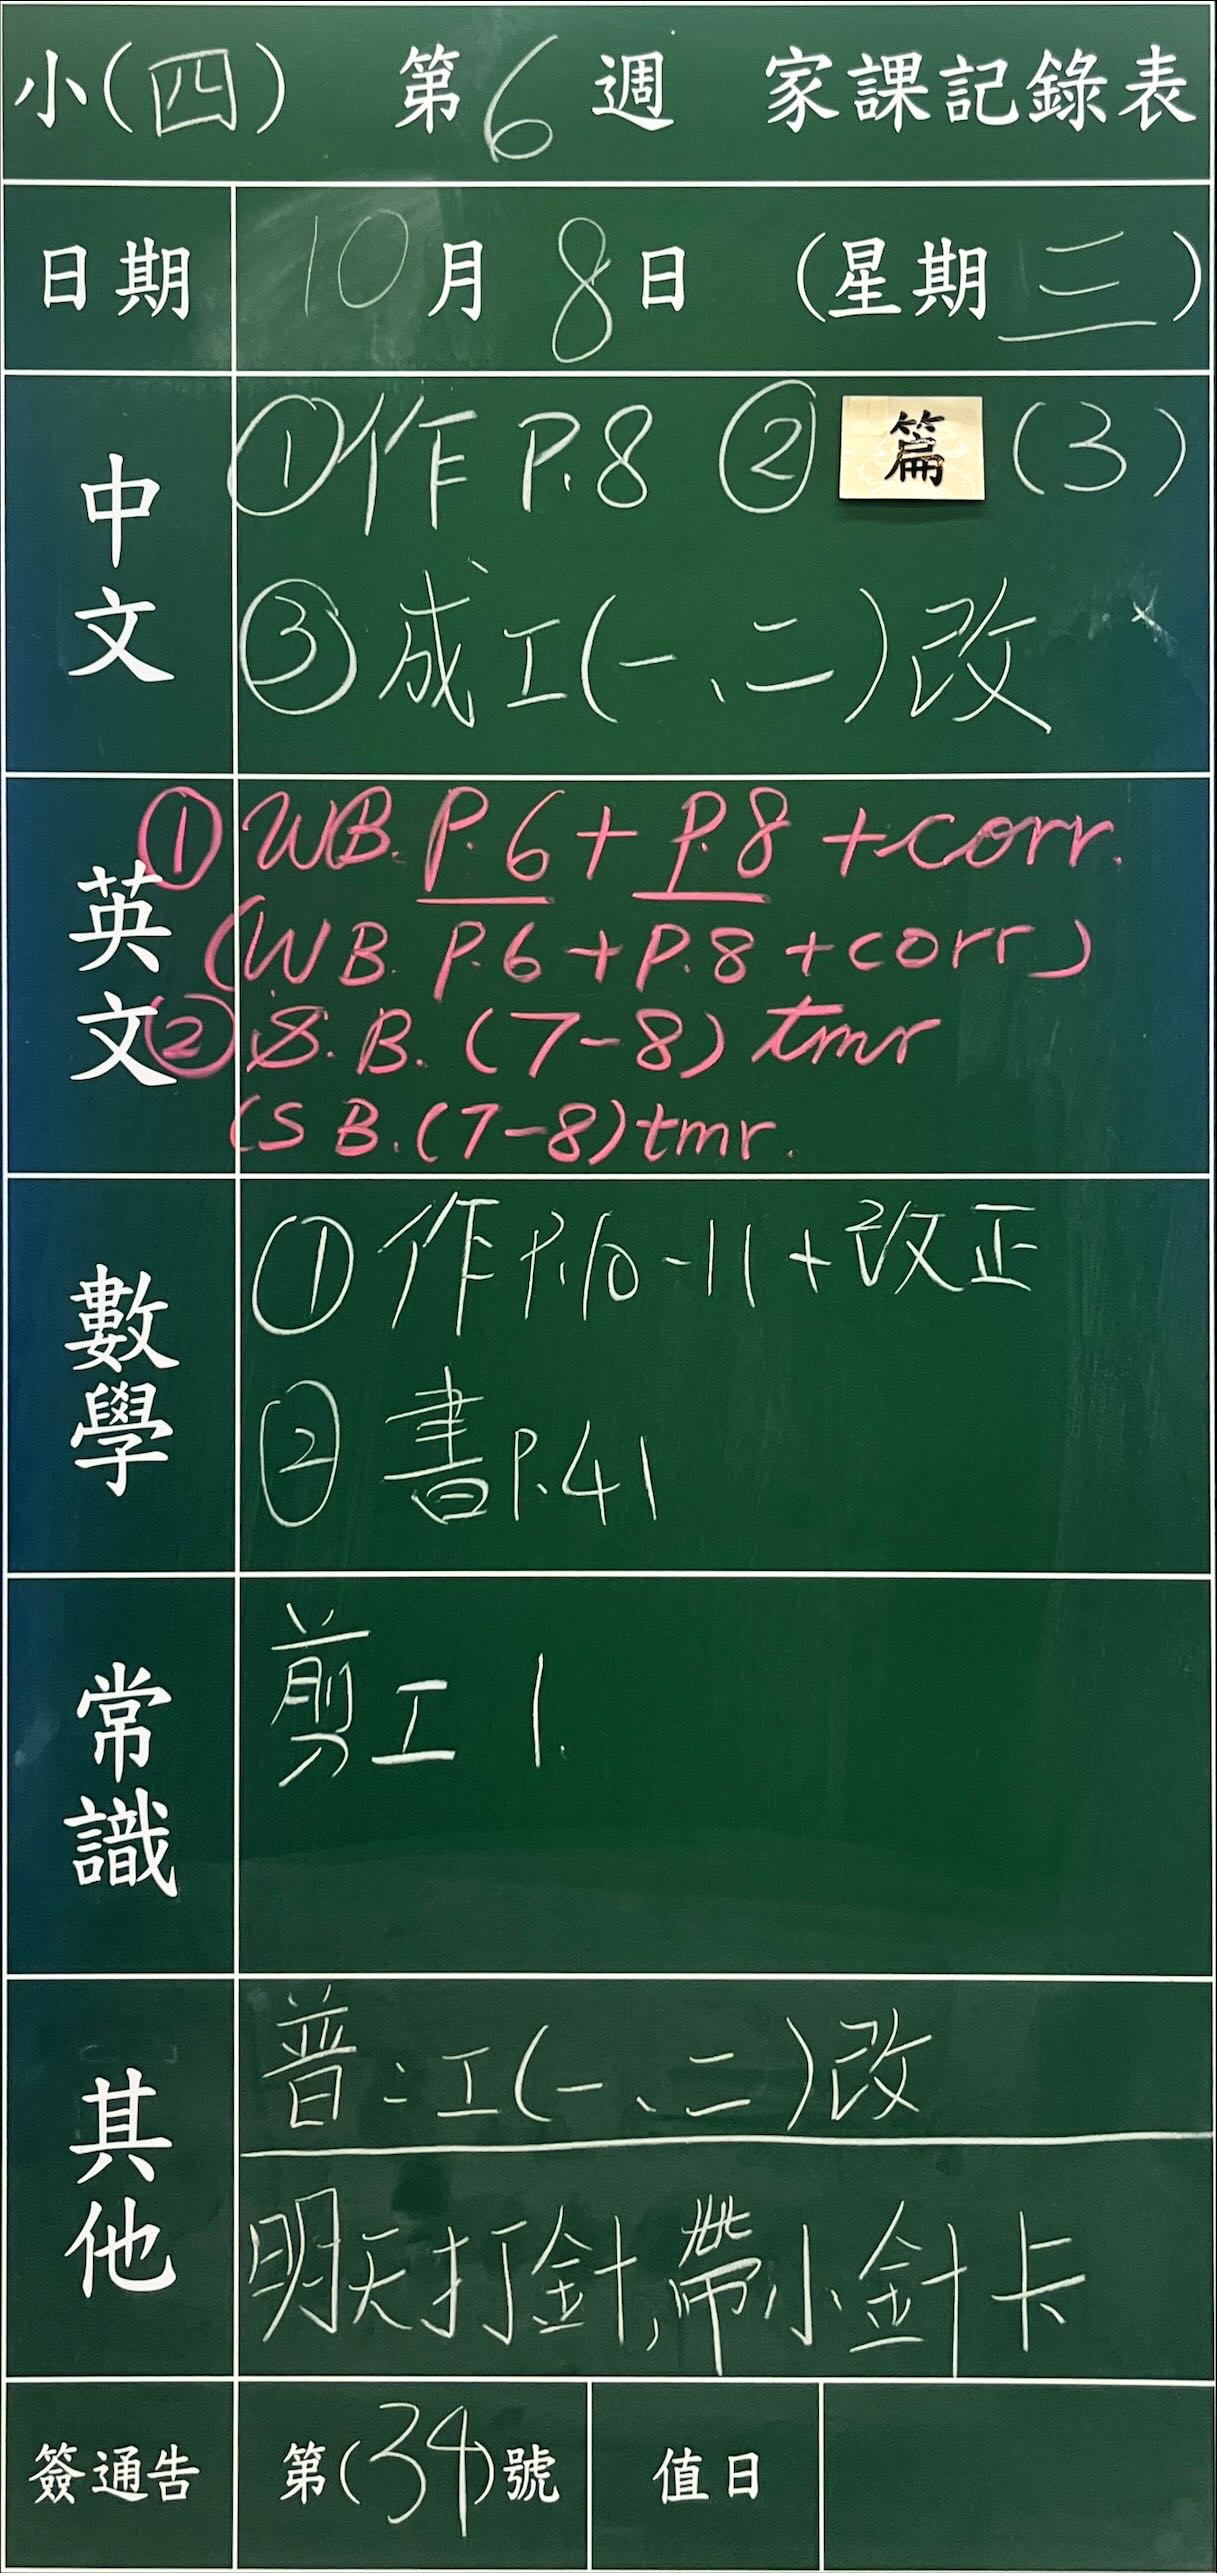 小(四) 第6週 家課記錄表
日期 10月8日 (星期三)
中文
①作 P.8 ②篇(3)
③成工(一、二)改
英文
① WB. P.6 + P.8 + corr.
(WB. P.6 + P.8 + corr)
② S.B. (7-8) tmr
(S B. (7-8) tmr.
數學
① 作 P.10-11 + 改正
② 書 P.41
常識
剪工 1.
其他
普:工(一、二)改
明天打針,帶小針卡
簽通告 第(34)號 值日